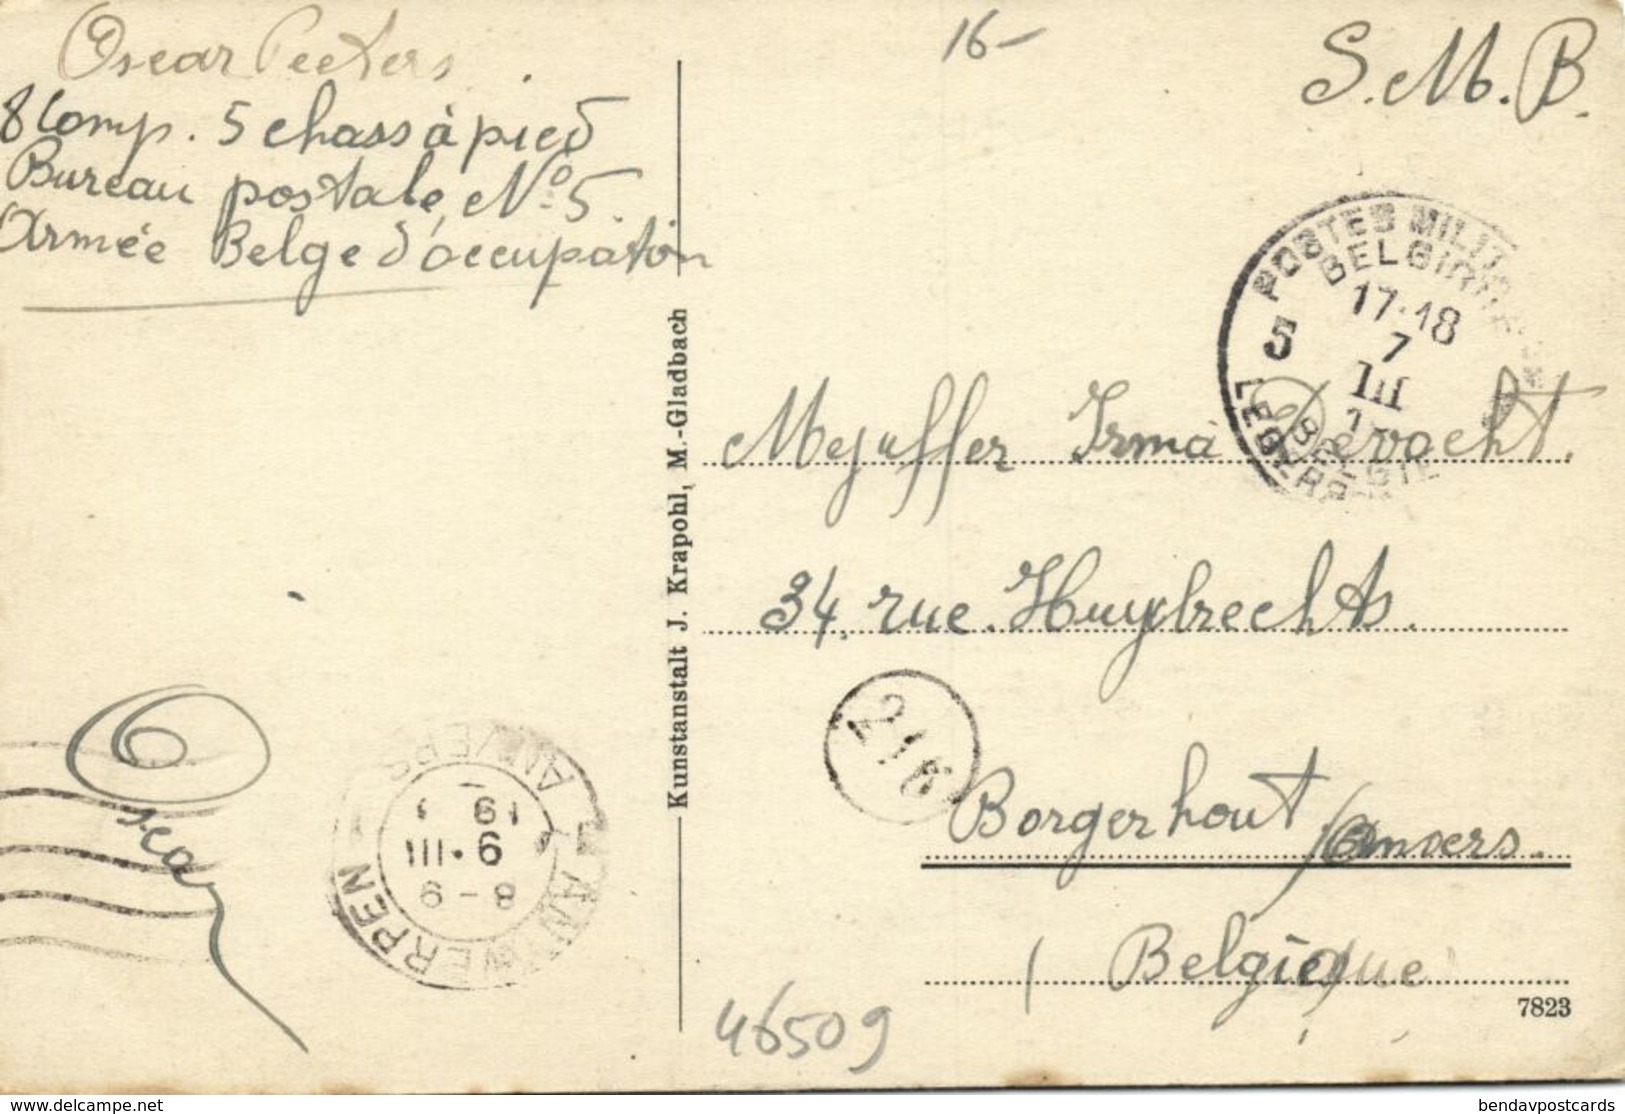 Oscar Peeters.
8 Comp. 5 chass à pied
Bureau postale No 5.
Armée Belge d'occupation
Oscar
Kunstanstalt J. Krapohl, M.-Gladbach
16-
S.M.B.
POSTES MILIT
BELGIQUE
17-18
7
III
5
LEGERP
BELGIE
Mejuffer Irma Devocht.
34. rue. Huybrechts.
216
Borgerhout / Anvers.
Belgique
7823
46509
ANTWERPEN
ANVERS
8-9
9.III
19
www.delcampe.net
bendavpostcards